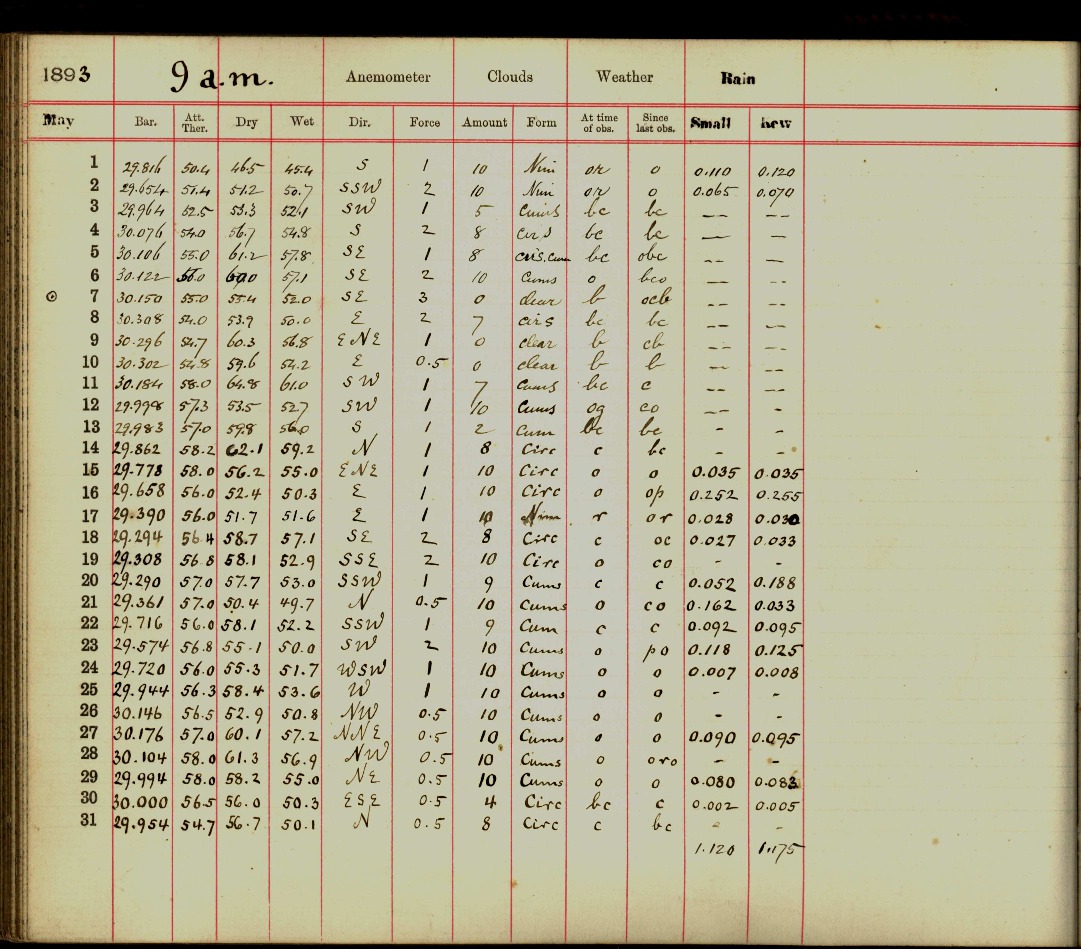 1893 9 a.m. Anemometer Clouds Weather Rain
May Bar. Att. Ther. Dry Wet Dir. Force Amount Form At time of obs. Since last obs. Small
1 29.816 50.4 46.5 45.4 S 1 10 Nim or o 0.110 0.120
2 29.654 51.4 51.2 50.7 SSW 2 10 Nim or o 0.065 0.070
3 29.964 52.5 53.3 52.1 SW 1 5 Cums bc bc -- --
4 30.076 54.0 56.7 54.8 S 2 8 cirs bc bc -- --
5 30.106 55.0 61.2 57.8 SE 1 8 cirs, cum bc obc -- --
6 30.122 60.0 57.1 SE 2 10 Cums o bco -- --
7 30.150 55.0 55.4 52.0 SE 3 0 clear b ocb -- --
8 30.308 54.0 53.9 50.0 E 2 7 cirs bc bc -- --
9 30.296 54.7 60.3 56.8 ENE 1 0 clear b cb -- --
10 30.302 54.8 59.6 54.2 E 0.5 0 clear b b -- --
11 30.184 58.0 64.8 61.0 SW 1 7 Cums bc c -- --
12 29.998 57.3 53.5 52.7 SW 1 10 Cums og co -- -
13 29.983 57.0 59.8 56.0 S 1 2 Cum bc bc - -
14 29.862 58.2 62.1 59.2 N 1 8 Circ c bc - -
15 29.778 58.0 56.2 55.0 ENE 1 10 Circ o o 0.035 0.035
16 29.658 56.0 52.4 50.3 E 1 10 Circ o op 0.252 0.255
17 29.390 56.0 51.7 51.6 E 1 10 Nim r or 0.028 0.030
18 29.294 56.4 58.7 57.1 SE 2 8 Circ c oc 0.027 0.033
19 29.308 56.8 58.1 52.9 SSE 2 10 Circ o co - -
20 29.290 57.0 57.7 53.0 SSW 1 9 Cums c c 0.052 0.188
21 29.361 57.0 50.4 49.7 N 0.5 10 Cums o co 0.162 0.033
22 29.716 56.0 58.1 52.2 SSW 1 9 Cum c c 0.092 0.095
23 29.574 56.8 55.1 50.0 SW 2 10 Cums o po 0.118 0.125
24 29.720 56.0 55.3 51.7 WSW 1 10 Cums o o 0.007 0.008
25 29.944 56.3 58.4 53.6 W 1 10 Cums o o - -
26 30.146 56.5 52.9 50.8 NW 0.5 10 Cums o o - -
27 30.176 57.0 60.1 57.2 NNE 0.5 10 Cums o o 0.090 0.095
28 30.104 58.0 61.3 56.9 NW 0.5 10 Cums o oro - -
29 29.994 58.0 58.2 55.0 NE 0.5 10 Cums o o 0.080 0.083
30 30.000 56.5 56.0 50.3 ESE 0.5 4 Circ bc c 0.002 0.005
31 29.954 54.7 56.7 50.1 N 0.5 8 Circ c bc - -
1.120 1.175